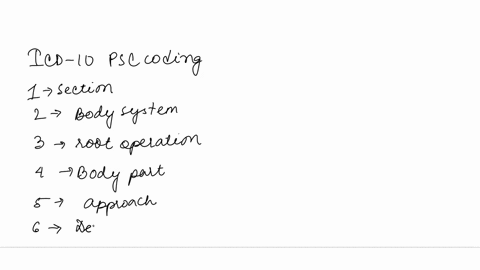 ICD-10 PSC coding
1 → section
2 → Body system
3 → root operation
4 → Body part
5 → approach
6 → De